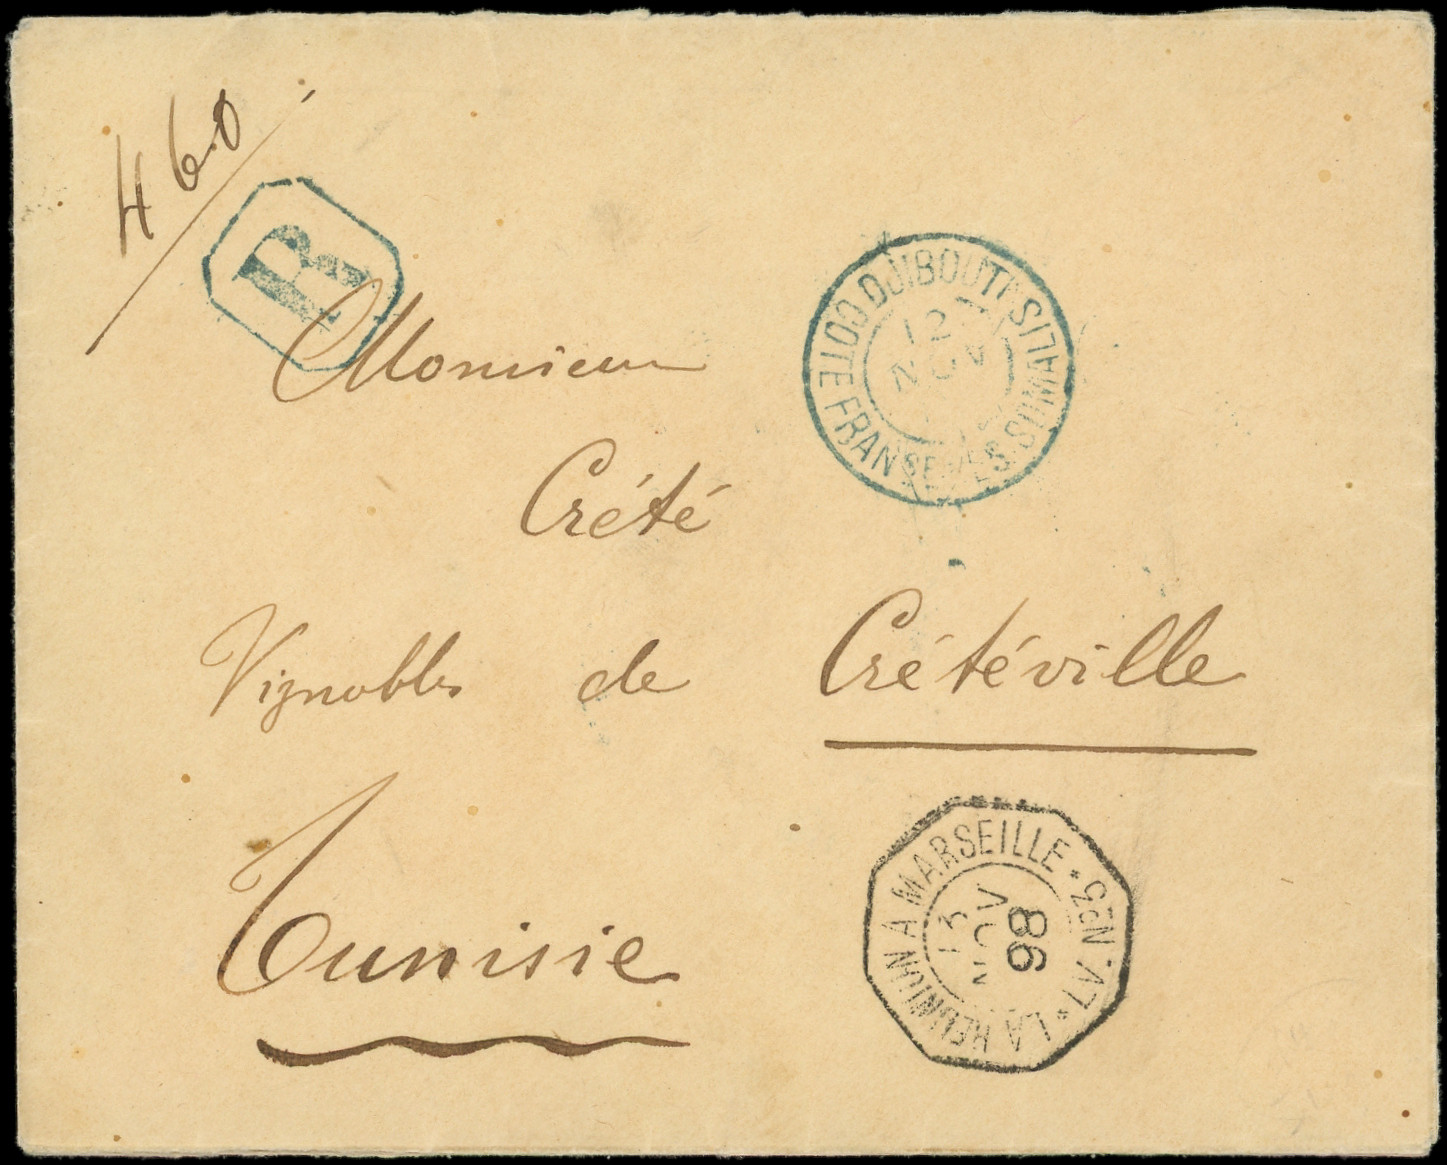 460
R
Monsieur
DJIBOUTI
COTE FRANSE DES SOMALIS
12
NOV
Crété
Vignobles de Crétéville
Tunisie
LA REUNION A MARSEILLE * LV. Nº3 *
13
NOV
98